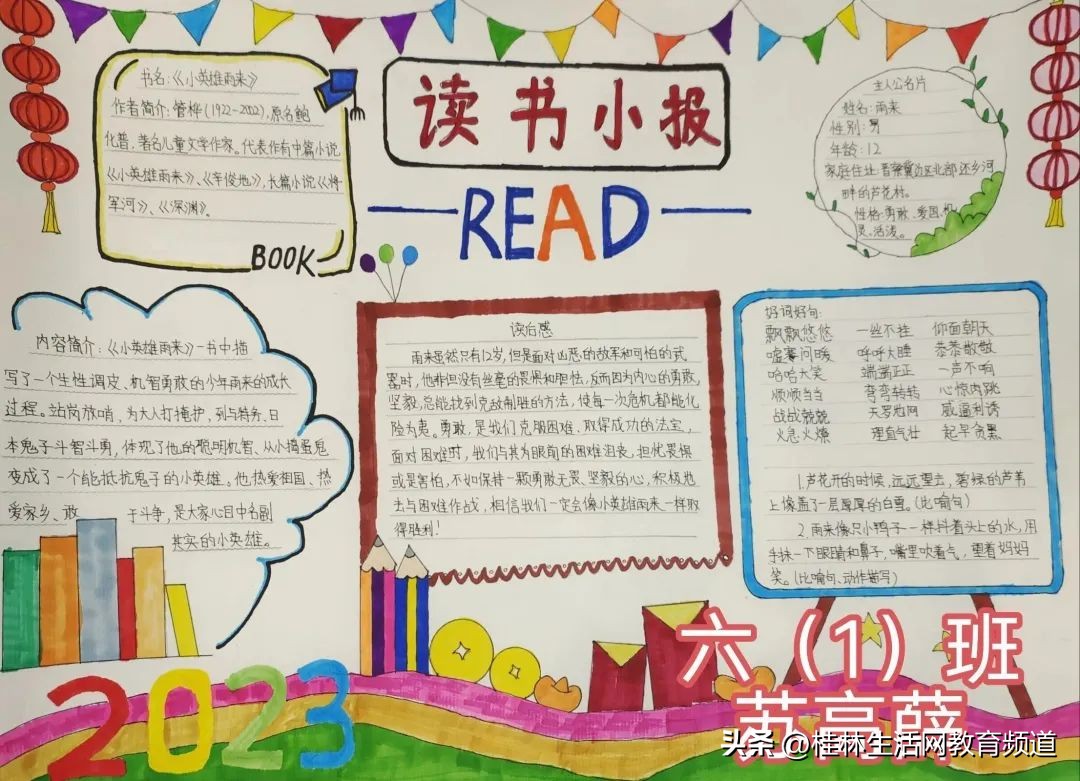 读书小报
READ
书名:《小英雄雨来》
作者简介:管桦(1922-2002),原名鲍
化普,著名儿童文学作家。代表作有中篇小说
《小英雄雨来》、《辛俊地》,长篇小说《将
军河》、《深渊》。
BOOK
主人公名片
姓名:雨来
性别:男
年龄:12
家庭住址:晋察冀边区北部还乡河
畔的芦花村。
性格:勇敢、爱国、机
灵、活泼。
内容简介:《小英雄雨来》一书中描
写了一个生性调皮、机智勇敢的少年雨来的成长
过程。站岗放哨,为大人打掩护,到与特务、日
本鬼子斗智斗勇,体现了他的聪明机智、从小捣蛋鬼
变成了一个能抵抗鬼子的小英雄。他热爱祖国、热
爱家乡、敢 于斗争,是大家心目中名副
其实的小英雄。
读后感
雨来虽然只有12岁,但是面对凶恶的敌军和可怕的武
器时,他非但没有丝毫的畏惧和胆怯,反而因为内心的勇敢,
坚毅,总能找到克敌制胜的方法,使每一次危机都能化
险为夷。勇敢,是我们克服困难,取得成功的法宝,
面对困难时,我们与其为眼前的困难沮丧,担忧畏惧
或是害怕,不如保持一颗勇敢无畏、坚毅的心,积极地
去与困难作战,相信我们一定会像小英雄雨来一样取
得胜利!
好词好句:
飘飘悠悠 一丝不挂 仰面朝天
嘘寒问暖 呼呼大睡 恭恭敬敬
哈哈大笑 端端正正 一声不响
顺顺当当 弯弯转转 心惊肉跳
战战兢兢 天罗地网 威逼利诱
火急火燎 理直气壮 起早贪黑
1.芦花开的时候,远远望去,碧绿的芦苇
上像盖了一层厚厚的白雪。(比喻句)
2.雨来像只小鸭子一样抖着头上的水,用
手抹一下眼睛和鼻子,嘴里吹着气,望着妈妈
笑。(比喻句、动作描写)
2023
六(1)班
苏高薛
头条@桂林生活网教育频道